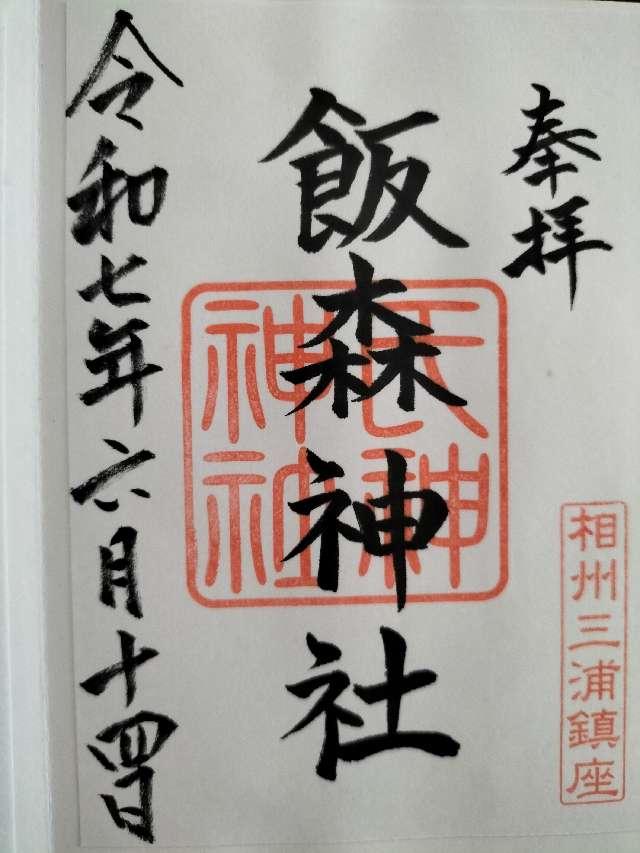 奉拝
相州三浦鎮座
飯森神社
氏神
神社
令和七年六月十四日